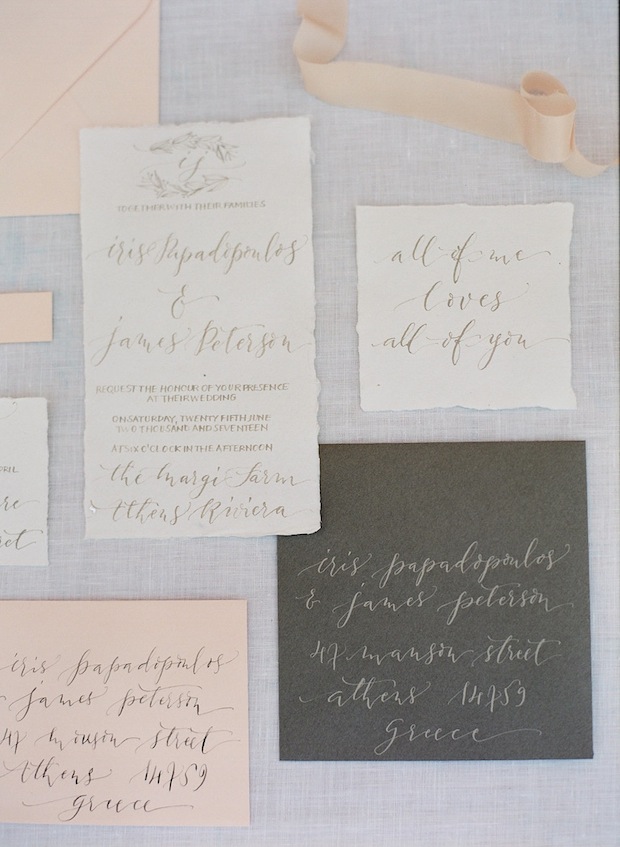 TOGETHER WITH THEIR FAMILIES
iris Papadopoulos
&
James Peterson
REQUEST THE HONOUR OF YOUR PRESENCE
AT THEIR WEDDING
ON SATURDAY, TWENTY FIFTH JUNE
TWO THOUSAND AND SEVENTEEN
AT SIX O'CLOCK IN THE AFTERNOON
the Margi Farm
Athens Riviera
all of me
loves
all of you
iris papadopoulos
& james peterson
47 manson street
athens 14759
Greece
iris papadopoulos
james peterson
47 manson street
Athens 14759
greece